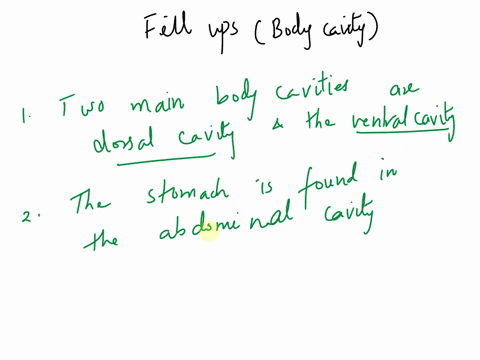 Fill ups (Body cavity)
1. Two main body cavities are
dorsal cavity & the ventral cavity
2. The stomach is found in
the abdominal cavity